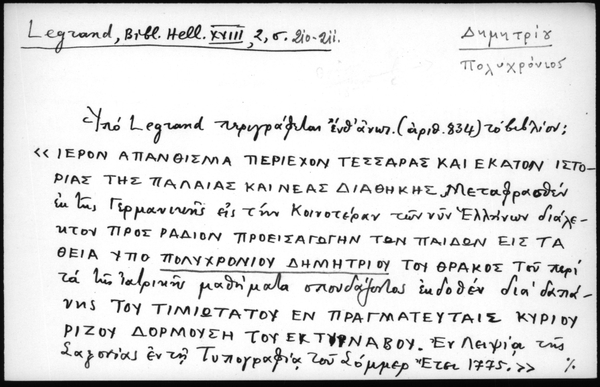 Legrand, Bibl. Hell. XVIII, 2, σ. 210-211.
Δημητρίου
Πολυχρόνιος
Ὑπό Legrand περιγράφεται ἔνθ' ἀνωτ. (ἀριθ. 834) τό βιβλίον:
«ΙΕΡΟΝ ΑΠΑΝΘΙΣΜΑ ΠΕΡΙΕΧΟΝ ΤΕΣΣΑΡΑΣ ΚΑΙ ΕΚΑΤΟΝ ΙΣΤΟ-
ΡΙΑΣ ΤΗΣ ΠΑΛΑΙΑΣ ΚΑΙ ΝΕΑΣ ΔΙΑΘΗΚΗΣ. Μεταφρασθέν
ἐκ τῆς Γερμανικῆς εἰς τήν Κοινοτέραν τῶν νῦν Ἑλλήνων διάλε-
κτον ΠΡΟΣ ΡΑΔΙΟΝ ΠΡΟΕΙΣΑΓΩΓΗΝ ΤΩΝ ΠΑΙΔΩΝ ΕΙΣ ΤΑ
ΘΕΙΑ ΥΠΟ ΠΟΛΥΧΡΟΝΙΟΥ ΔΗΜΗΤΡΙΟΥ ΤΟΥ ΘΡΑΚΟΣ Τοῦ περί
τά τῆς Ἰατρικῆς μαθήματα σπουδάζοντος ἐκδοθέν διά δαπά-
νης ΤΟΥ ΤΙΜΙΩΤΑΤΟΥ ΕΝ ΠΡΑΓΜΑΤΕΥΤΑΙΣ ΚΥΡΙΟΥ
ΡΙΖΟΥ ΔΟΡΜΟΥΣΗ ΤΟΥ ΕΚ ΤΥΡΝΑΒΟΥ. Ἐν Λειψίᾳ τῆς
Σαξονίας ἐν τῇ Τυπογραφίᾳ τοῦ Σόμμερ Ἔτει 1775.» %